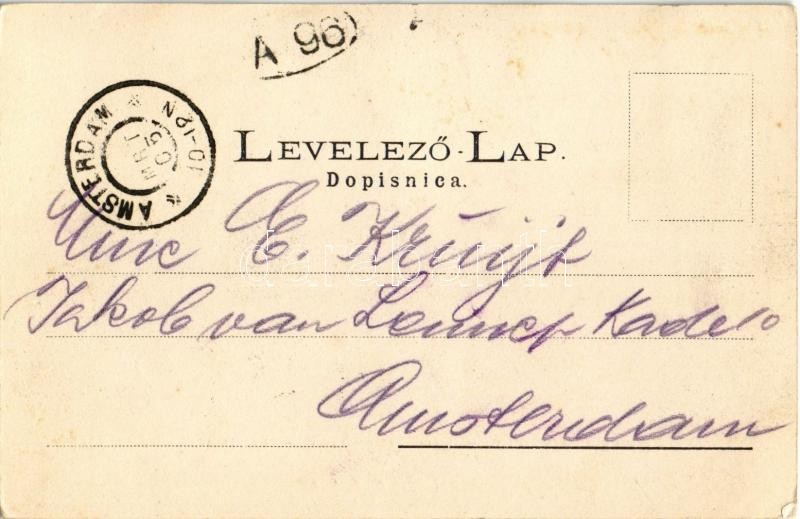 A 96
AMSTERDAM * 10-12N *
MRT
05
LEVELEZŐ-LAP.
Dopisnica.
Mme E. Kruijf
Jakob van Lennep Kade
Amsterdam
darabanth